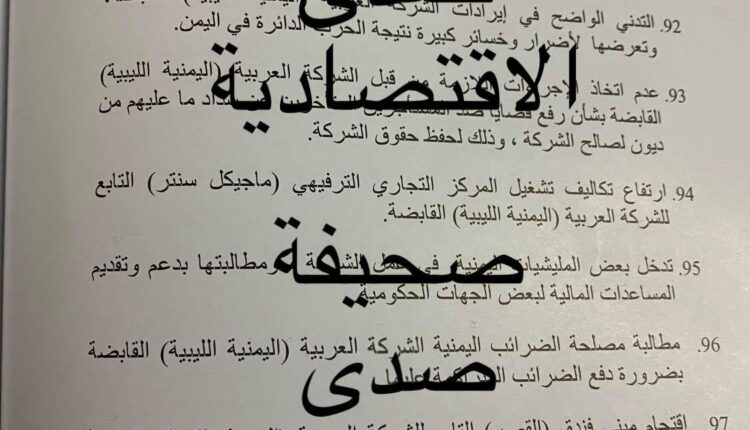 92. التدني الواضح في إيرادات الشركة
وتعرضها لأضرار وخسائر كبيرة نتيجة الحرب الدائرة في اليمن.
الاقتصادية
93. عدم اتخاذ من قبل الشركة العربية (اليمنية الليبية)
القابضة بشأن رفع قضايا ضد ما عليهم من
ديون لصالح الشركة ، وذلك لحفظ حقوق الشركة.
94. ارتفاع تكاليف تشغيل المركز التجاري الترفيهي (ماجيكل سنتر) التابع
للشركة العربية (اليمنية الليبية) القابضة.
صحيفة
95. تدخل بعض المليشيات اليمنية في ومطالبتها بدعم وتقديم
المساعدات المالية لبعض الجهات الحكومية.
96. مطالبة مصلحة الضرائب اليمنية الشركة العربية (اليمنية الليبية) القابضة
صدى
بضرورة دفع الضرائب عليها.
97. اقتحام مبنى فندق